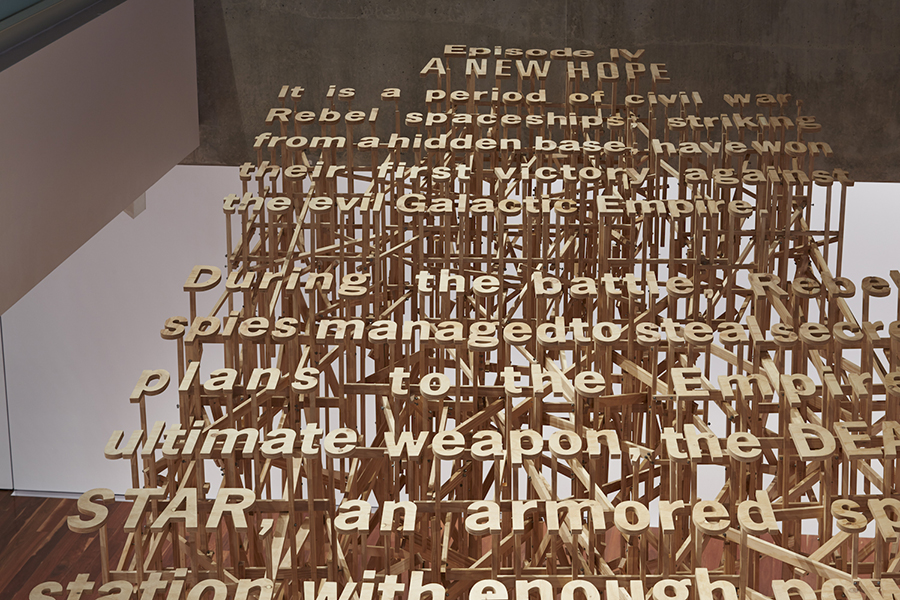 Episode IV
A NEW HOPE
It is a period of civil war
Rebel spaceships, striking
from a hidden base, have won
their first victory against
the evil Galactic Empire.
During the battle, Rebel
spies managed to steal secre
plans to the Empire
ultimate weapon, the DEA
STAR, an armored sp
station with enough pow